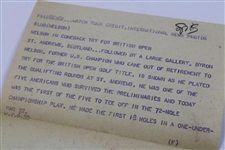 WATCH YOUR CREDIT, INTERNATIONAL NEWS PHOTOS
SLUG(NELSON)
NELSON IN COMEBACK TRY FOR BRITISH OPEN
ST. ANDREWS, SCOTLAND...FOLLOWED BY A LARGE GALLERY, BYRON
NELSON, FORMER U.S. CHAMPION WHO CAME OUT OF RETIREMENT TO
TRY FOR THE BRITISH OPEN GOLF TITLE, IS SHOWN AS HE PLAYED
THE QUALIFYING ROUNDS AT ST. ANDREWS, HE WAS ONE OF THE
FIVE AMERICANS WHO SURVIVED THE PRELIMINARIES AND TODAY
WAS THE FIRST OF THE FIVE TO TEE OFF IN THE 72-HOLE
CHAMPIONSHIP PLAY. HE MADE THE FIRST 18 HOLES IN A ONE-UNDER-